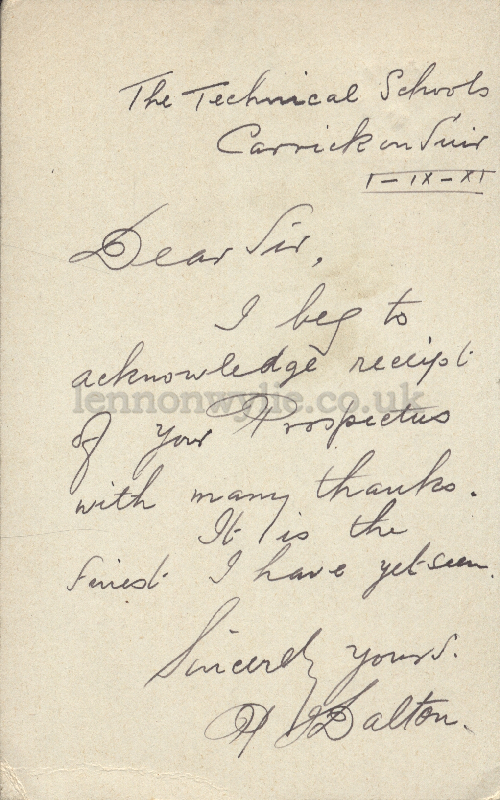 The Technical Schools
Carrick on Suir
I-IX-XI
Dear Sir,
I beg to
acknowledge receipt
lennonwylie.co.uk
of your Prospectus
with many thanks.
It is the
finest I have yet seen.
Sincerely yours.
H J Dalton.